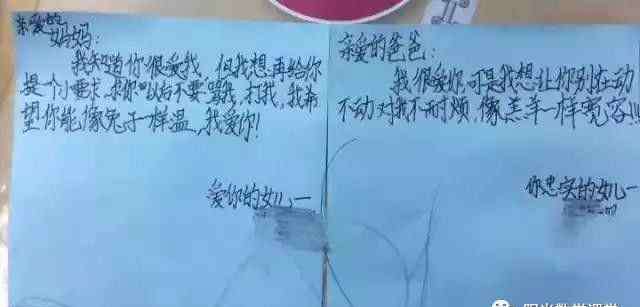 亲爱的
妈妈:
我知道你很爱我,但我想再给你
提一个小要求,求你“以后不要”骂我,打我,我希
望你能像兔子一样温,我爱你!
爱你的女儿一
亲爱的爸爸:
我很爱你,可是我想让你别在动
不动对我不耐烦,像羔羊一样宽容!!
你忠实的女儿一
阳光数学课堂